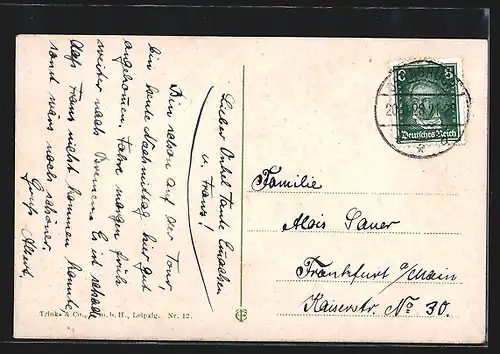 Lieber Onkel Tante Emchen
u. Franz!
Bin schon auf der Tour,
bin heute Nachmittag hier gut
angekommen. Fahre morgen früh
weiter nach Bremen. Es ist schade
daß Franz nicht kommen konnte
sonst wärs noch schöner.
Gruß Albert.
8 8
Deutsches Reich
Familie
Alois Sauer
Frankfurt a/Main
Kaiserstr. No 30.
Trinks & Co., G.m.b.H., Leipzig. Nr. 12.